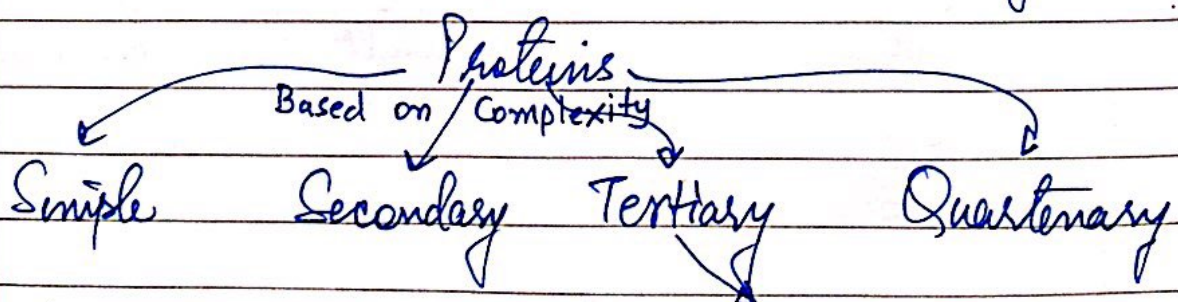 Proteins
Based on Complexity
Simple Secondary Tertiary Quarternary